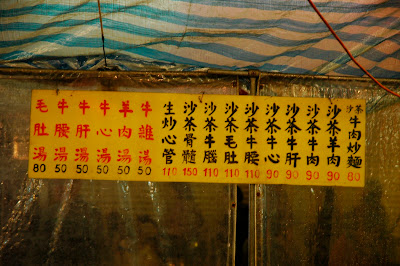 沙茶牛肉炒麵 80
沙茶羊肉 90
沙茶牛肉 90
沙茶牛肝 90
沙茶牛心 90
沙茶牛腰 110
沙茶毛肚 110
沙茶牛腦 110
沙茶骨髓 150
生炒心管 110
牛雜湯 50
羊肉湯 50
牛心湯 50
牛肝湯 50
牛腰湯 50
毛肚湯 80